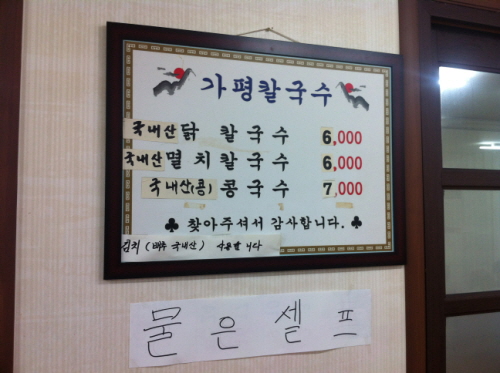 가평칼국수
국내산닭 칼국수 6,000
국내산멸치칼국수 6,000
국내산(콩) 콩국수 7,000
♣ 찾아주셔서 감사합니다. ♣
김치 (배추 국내산) 사용합니다
물은 셀프